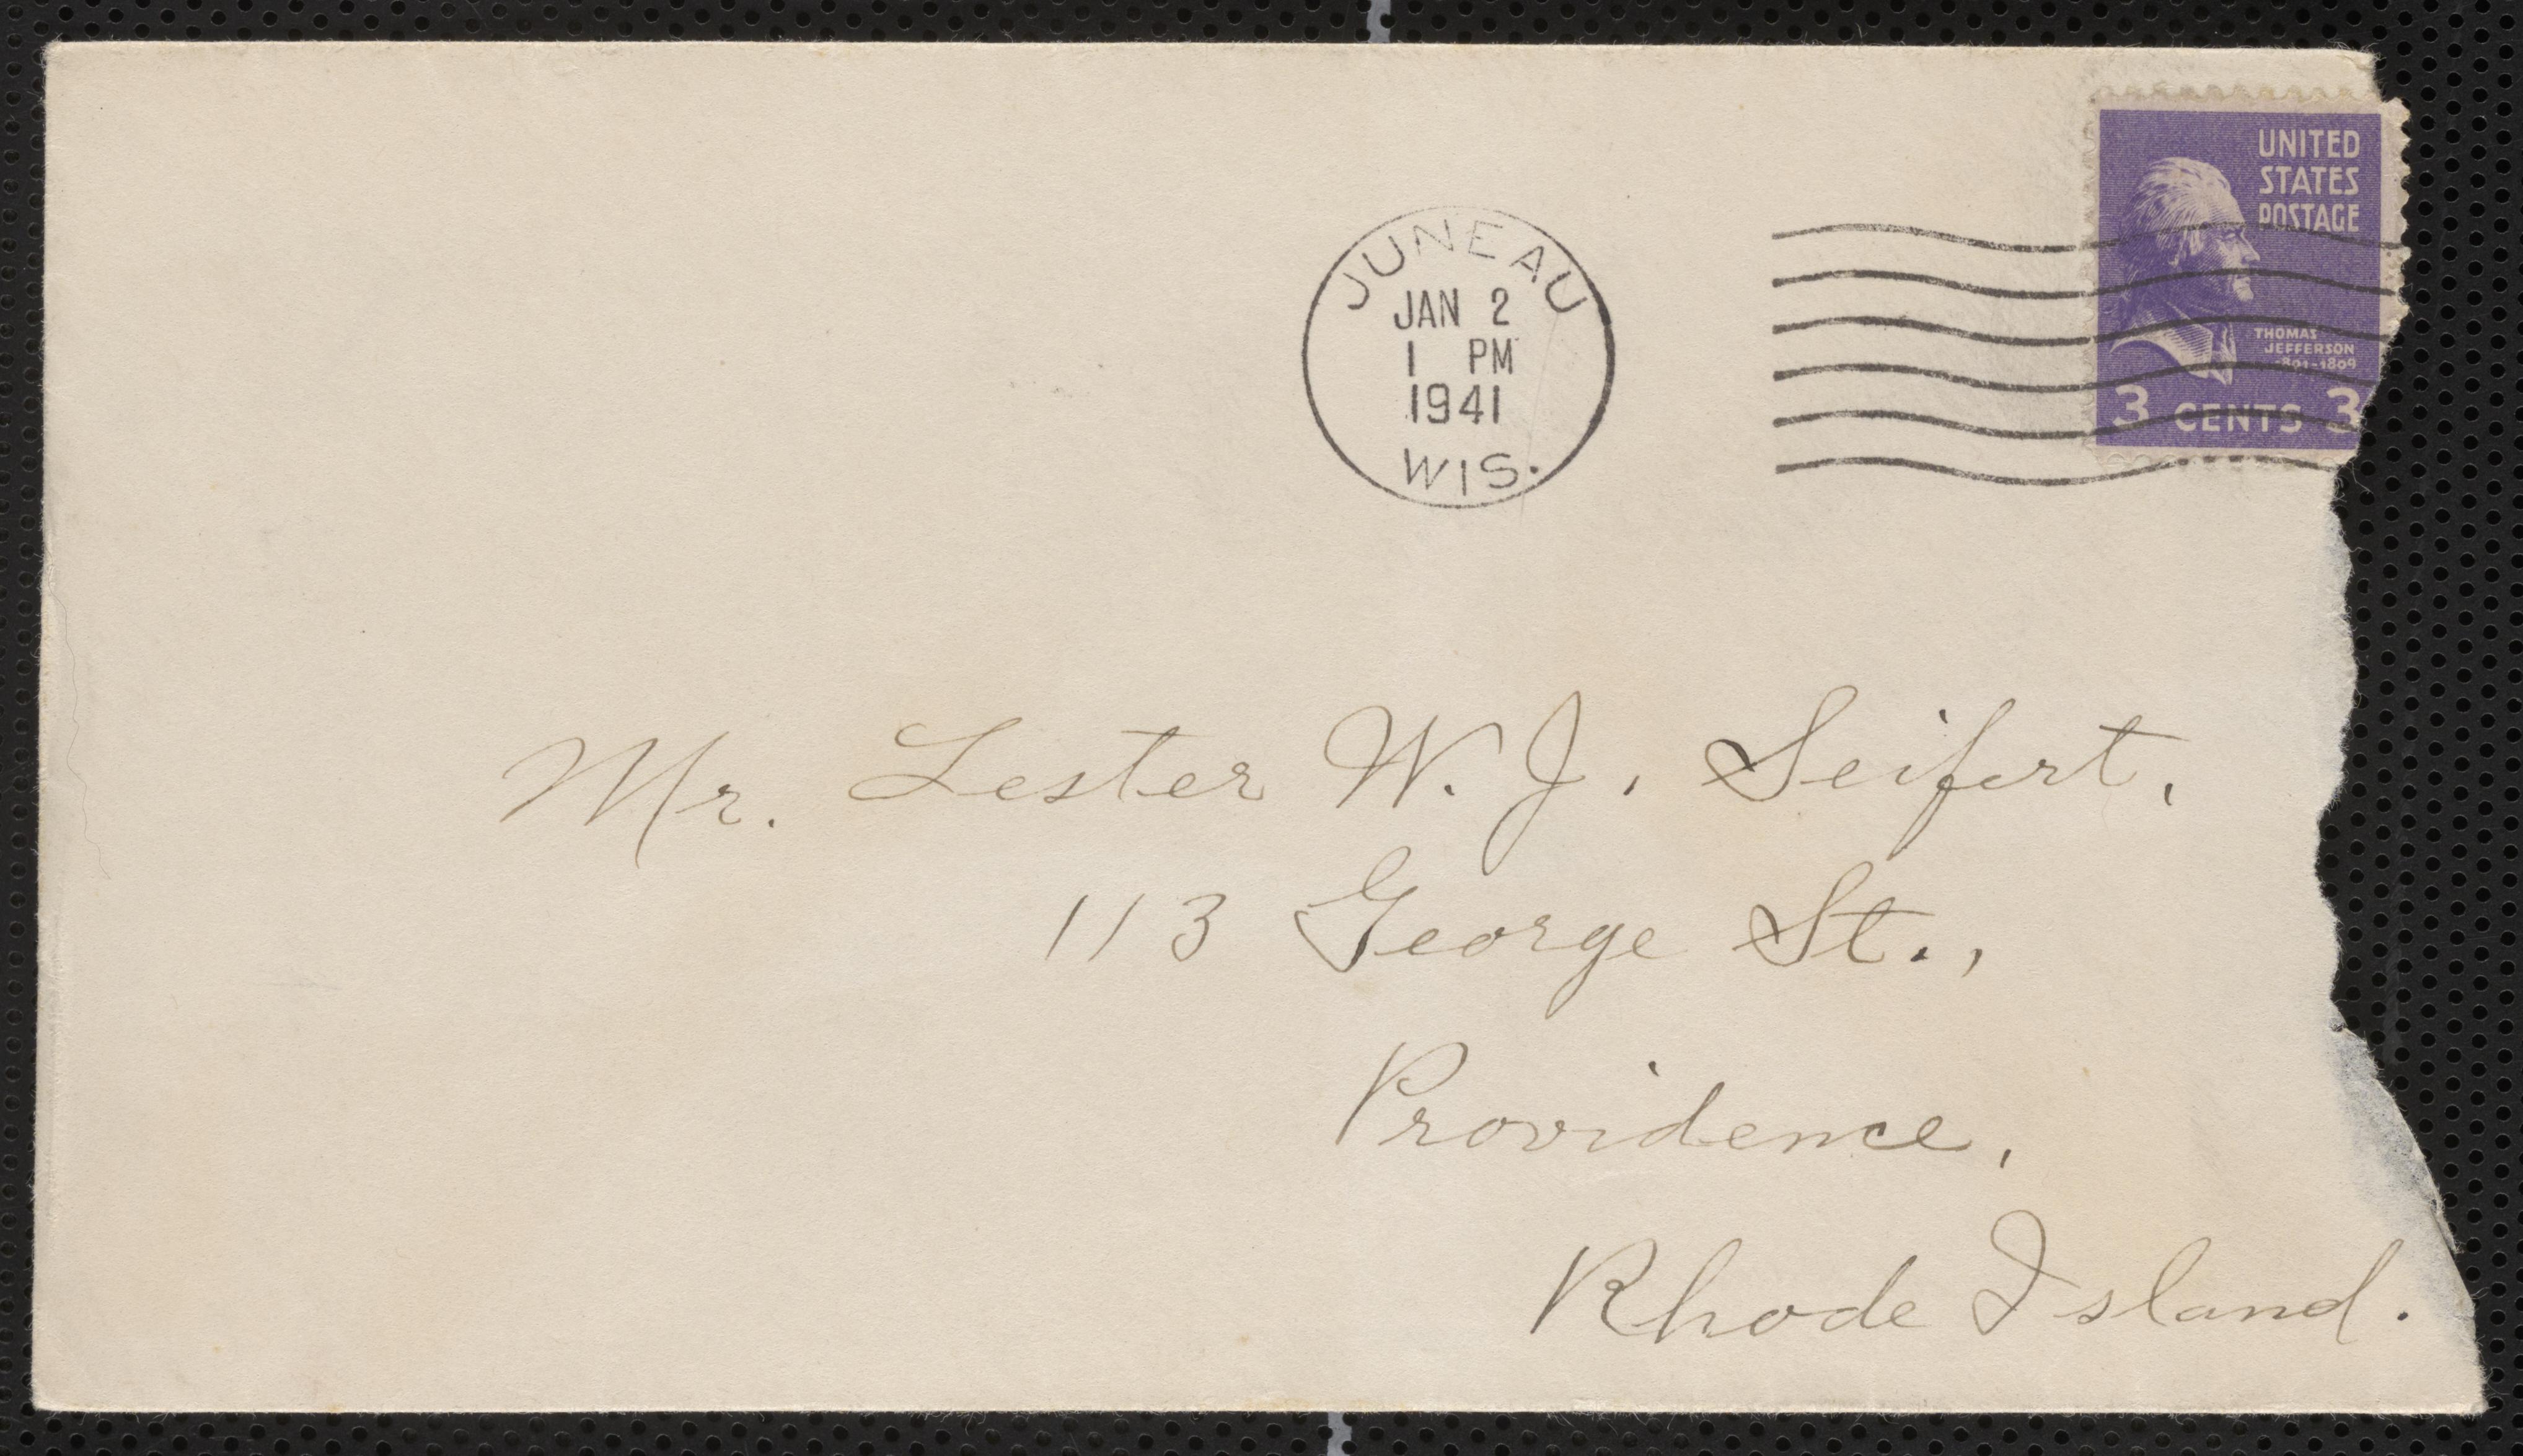 UNITED
STATES
POSTAGE
THOMAS
JEFFERSON
1801-1809
3 CENTS 3
JUNEAU
JAN 2
1 PM
1941
WIS.
Mr. Lester W. J. Seifert,
113 George St.,
Providence,
Rhode Island.